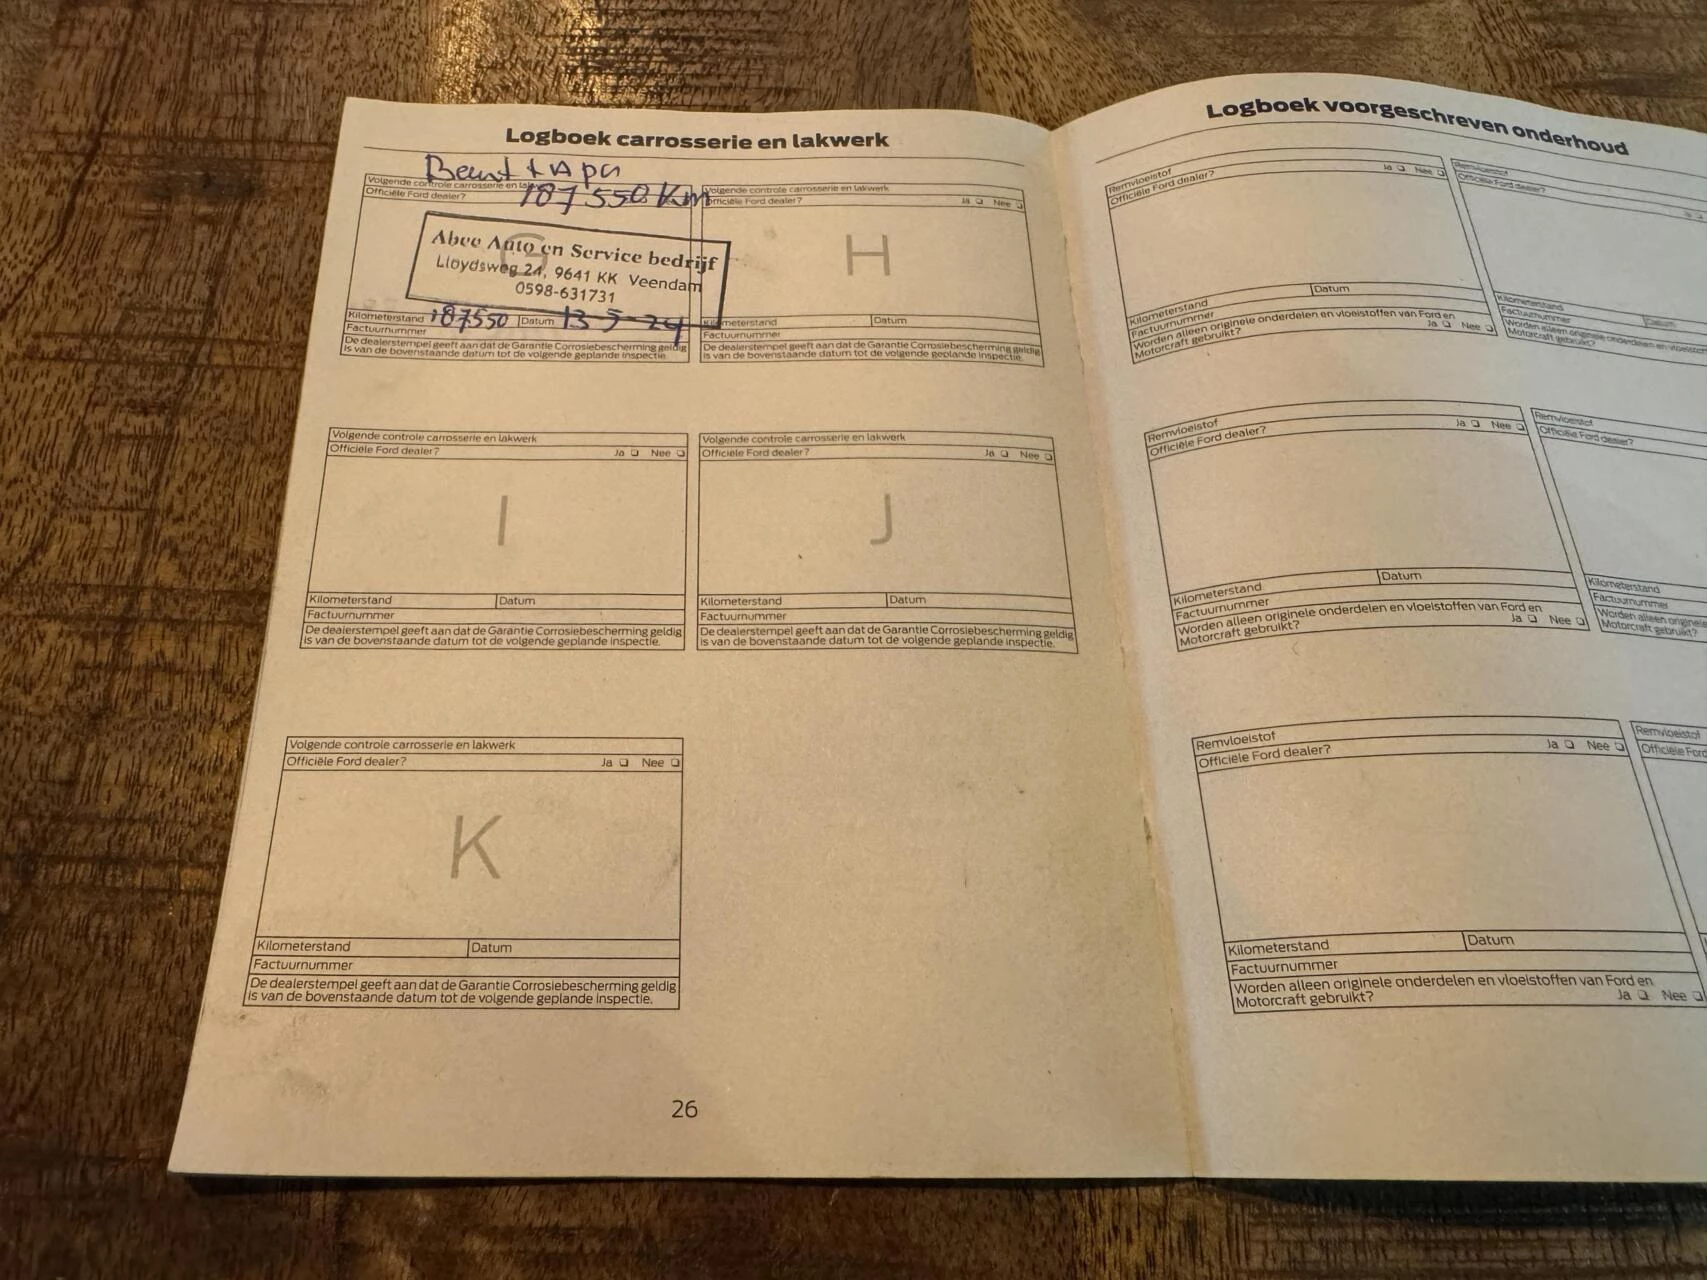 Logboek carrosserie en lakwerk
Beurt + Apk
187550 Km
Volgende controle carrosserie en
Officiële Ford dealer?
G
Abee Auto en Service bedrijf
Lloydsweg 24, 9641 KK Veendam
0598-631731
Kilometerstand 187550 Datum 13-5-24
Factuurnummer
De dealerstempel geeft aan dat de Garantie Corrosiebescherming geldig
is van de bovenstaande datum tot de volgende geplande inspectie.
Volgende controle carrosserie en lakwerk
Officiële Ford dealer? Ja Nee
H
Kilometerstand Datum
Factuurnummer
De dealerstempel geeft aan dat de Garantie Corrosiebescherming geldig
is van de bovenstaande datum tot de volgende geplande inspectie.
Volgende controle carrosserie en lakwerk
Officiële Ford dealer? Ja Nee
I
Kilometerstand Datum
Factuurnummer
De dealerstempel geeft aan dat de Garantie Corrosiebescherming geldig
is van de bovenstaande datum tot de volgende geplande inspectie.
Volgende controle carrosserie en lakwerk
Officiële Ford dealer? Ja Nee
J
Kilometerstand Datum
Factuurnummer
De dealerstempel geeft aan dat de Garantie Corrosiebescherming geldig
is van de bovenstaande datum tot de volgende geplande inspectie.
Volgende controle carrosserie en lakwerk
Officiële Ford dealer? Ja Nee
K
Kilometerstand Datum
Factuurnummer
De dealerstempel geeft aan dat de Garantie Corrosiebescherming geldig
is van de bovenstaande datum tot de volgende geplande inspectie.
26
Logboek voorgeschreven onderhoud
Remvloeistof
Officiële Ford dealer? Ja Nee
Kilometerstand Datum
Factuurnummer
Worden alleen originele onderdelen en vloeistoffen van Ford en
Motorcraft gebruikt? Ja Nee
Remvloeistof
Officiële Ford dealer?
Kilometerstand Datum
Factuurnummer
Worden alleen originele onderdelen en
Motorcraft gebruikt?
Remvloeistof
Officiële Ford dealer? Ja Nee
Kilometerstand Datum
Factuurnummer
Worden alleen originele onderdelen en vloeistoffen van Ford en
Motorcraft gebruikt? Ja Nee
Remvloeistof
Officiële Ford dealer?
Kilometerstand
Factuurnummer
Worden alleen originele
Motorcraft gebruikt?
Remvloeistof
Officiële Ford dealer? Ja Nee
Kilometerstand Datum
Factuurnummer
Worden alleen originele onderdelen en vloeistoffen van Ford en
Motorcraft gebruikt? Ja Nee
Remvloeistof
Officiële Ford